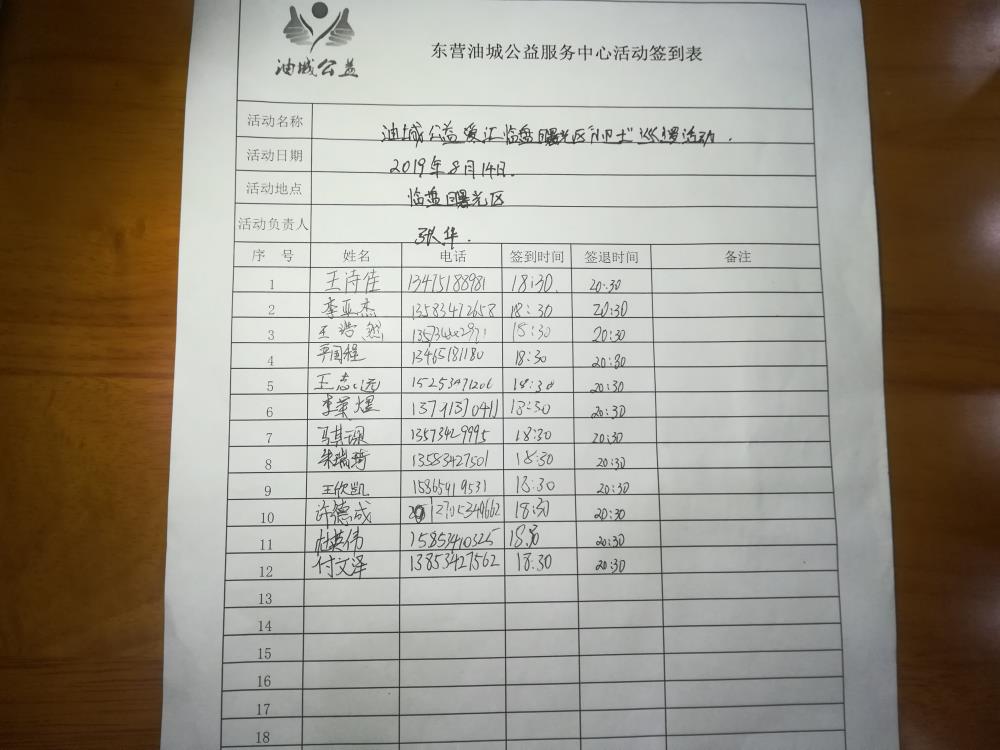 油城公益
东营油城公益服务中心活动签到表
活动名称 油城公益爱汇临盘曙光区"小卫士"巡逻活动.
活动日期 2019年8月14日.
活动地点 临盘曙光区
活动负责人 张华.
序 号 姓名 电话 签到时间 签退时间 备注
1 王诗佳 13475188981 18:30. 20:30
2 李亚杰 13583472658 18:30 20:30
3 王浩然 18:30 20:30
4 13465181180 18:30 20:30
5 王志远 15253471206 18:30 20:30
6 李英煜 18:30 20:30
7 马其琛 13573429995 18:30 20:30
8 朱瑞琦 13583427501 18:30 20:30
9 王欣凯 15865419531 18:30 20:30
10 许德成 12705344662 18:30 20:30
11 杜英伟 15853410325 18:30 20:30
12 付文泽 13853427562 18:30 20:30
13
14
15
16
17
18